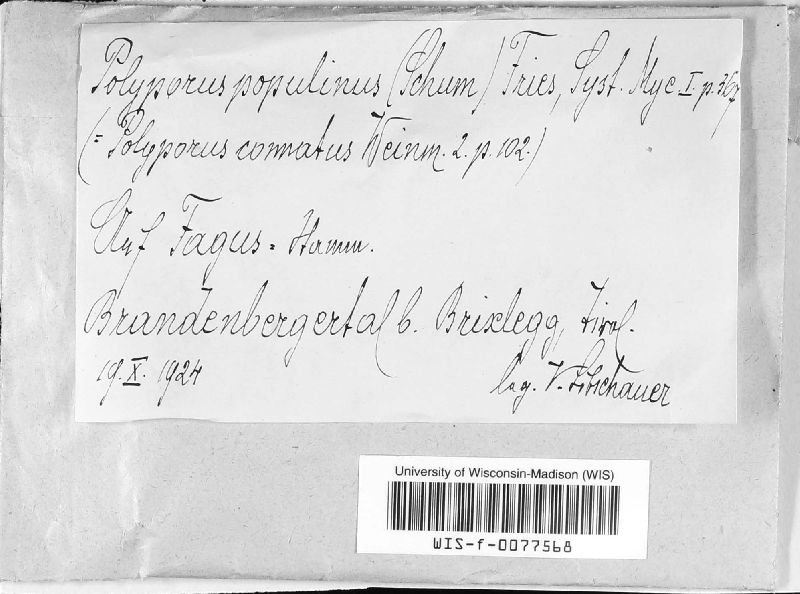 Polyporus populinus (Schum) Fries, Syst. Myc I. p. 367
(= Polyporus connatus Weinm. 2. p. 102.)
Auf Fagus = Stamm.
Brandenbergertal b. Brixlegg, Tirol.
19. X. 1924
leg. V. Litschauer
University of Wisconsin-Madison (WIS)
WIS-f-0077568